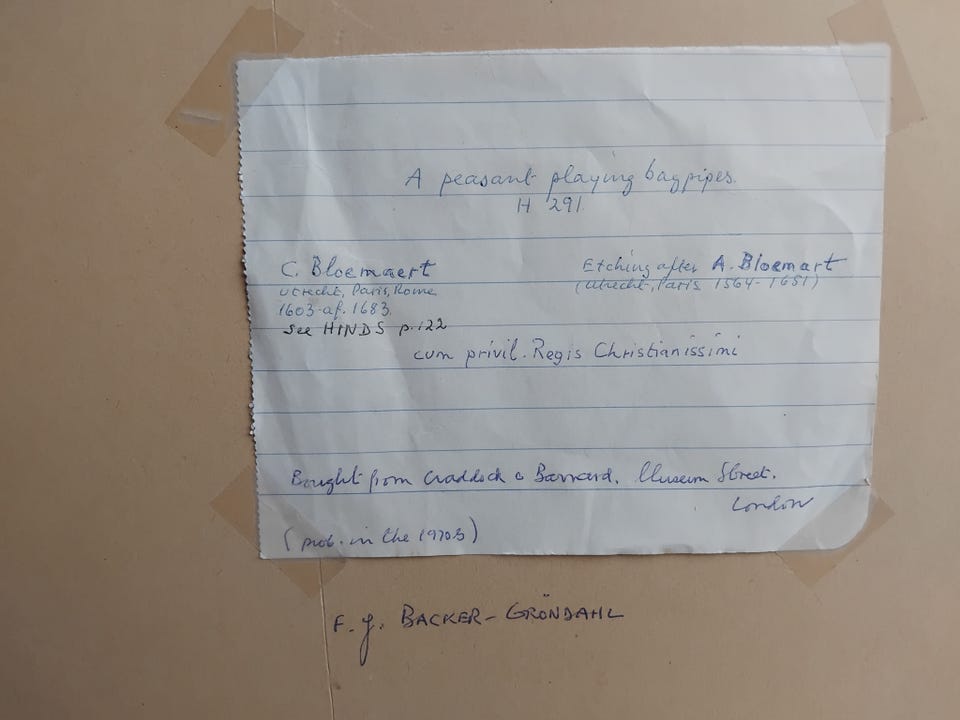 A peasant playing bagpipes.
H 291.
C. Bloemaert
Utrecht, Paris, Rome
1603-af. 1683.
See HINDS p.122
Etching after A. Bloemart
(Utrecht, Paris 1564-1651)
cum privil. Regis Christianissimi
Bought from Craddock & Barnard. Museum Street.
London
(prob. in the 1970s)
F. J. BACKER-GRÖNDAHL